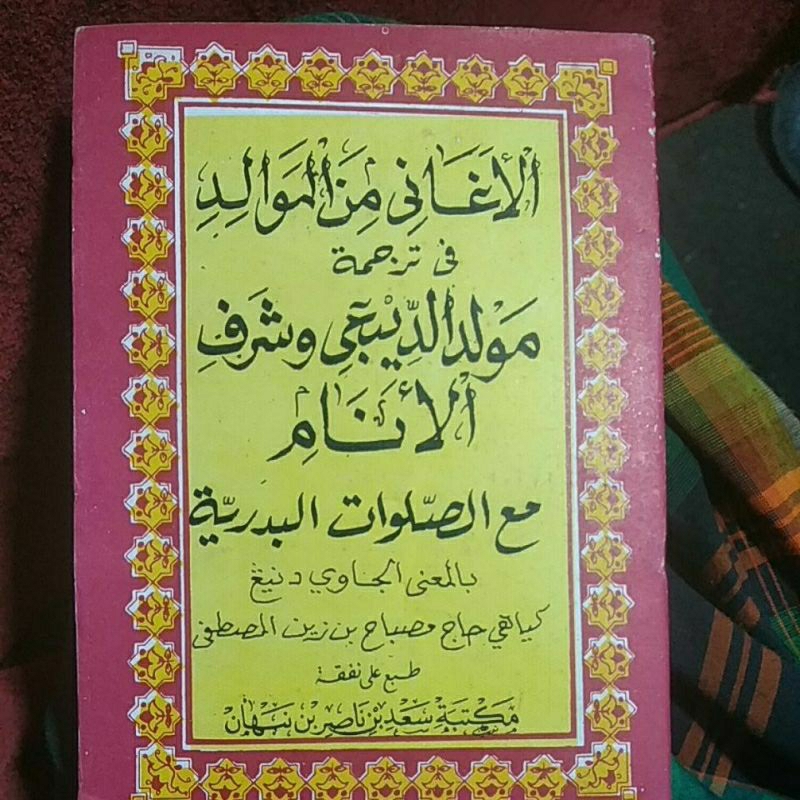 الْأَغَانِي مِنَ الْمَوَالِدِ
فى ترجمة
مَوْلِدِ الدِّيْبَعِي وَشَرَفِ
الْأَنَامِ
مع الصّلوات البدريّة
بالمعنى الجاوي دنيڠ
كياهي حاج مصباح بن زين المصطفى
طبع على نفقة
مَكْتَبَة سَعْد بْن نَاصِر بْن نَبْهَان